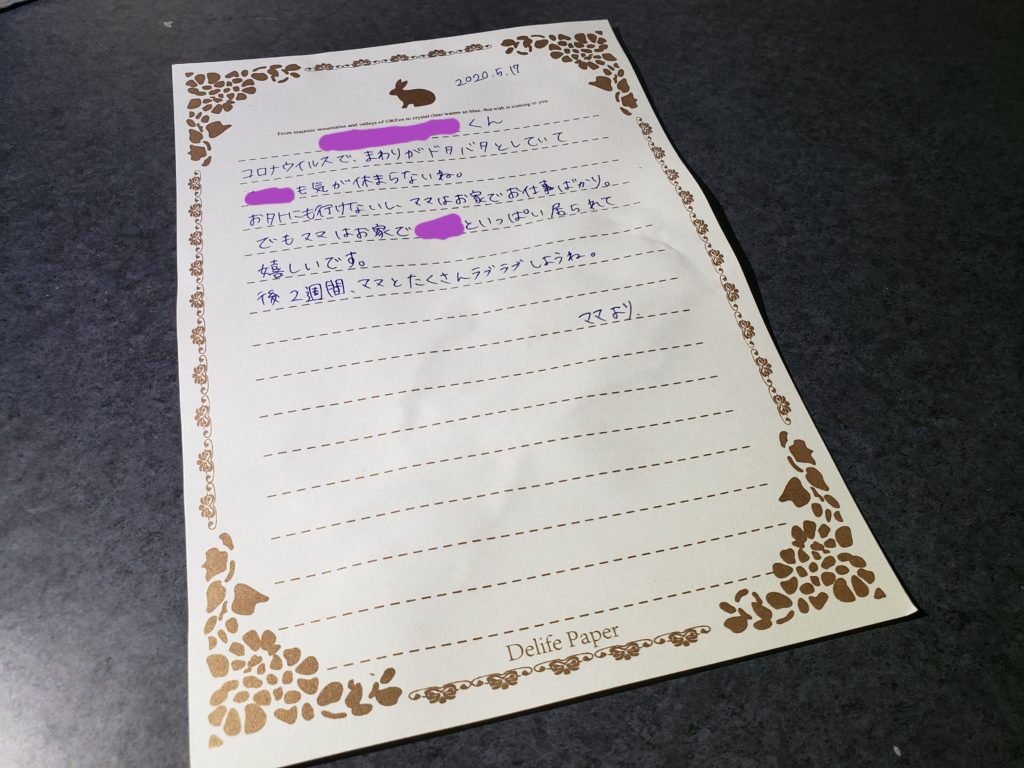 2020.5.17
From majestic mountains and valleys of GREen to crystal clear waters so blue, this wish is coming to you.
くん
コロナウイルスで、まわりがドタバタとしていて
も気が休まらないね。
お外にも行けないし、ママはお家でお仕事ばかり。
でもママはお家で といっぱい居られて
嬉しいです。
後2週間、ママとたくさんラブラブしようね。
ママより
Delife Paper